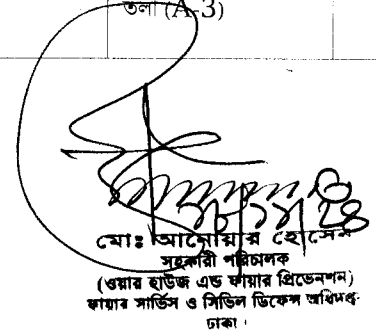 তলা (A-3)
মোঃ আনোয়ার হোসেন
সহকারী পরিচালক
(ওয়ার হাউজ এন্ড ফায়ার প্রিভেনশন)
ফায়ার সার্ভিস ও সিভিল ডিফেন্স অধিদপ্তর
ঢাকা।